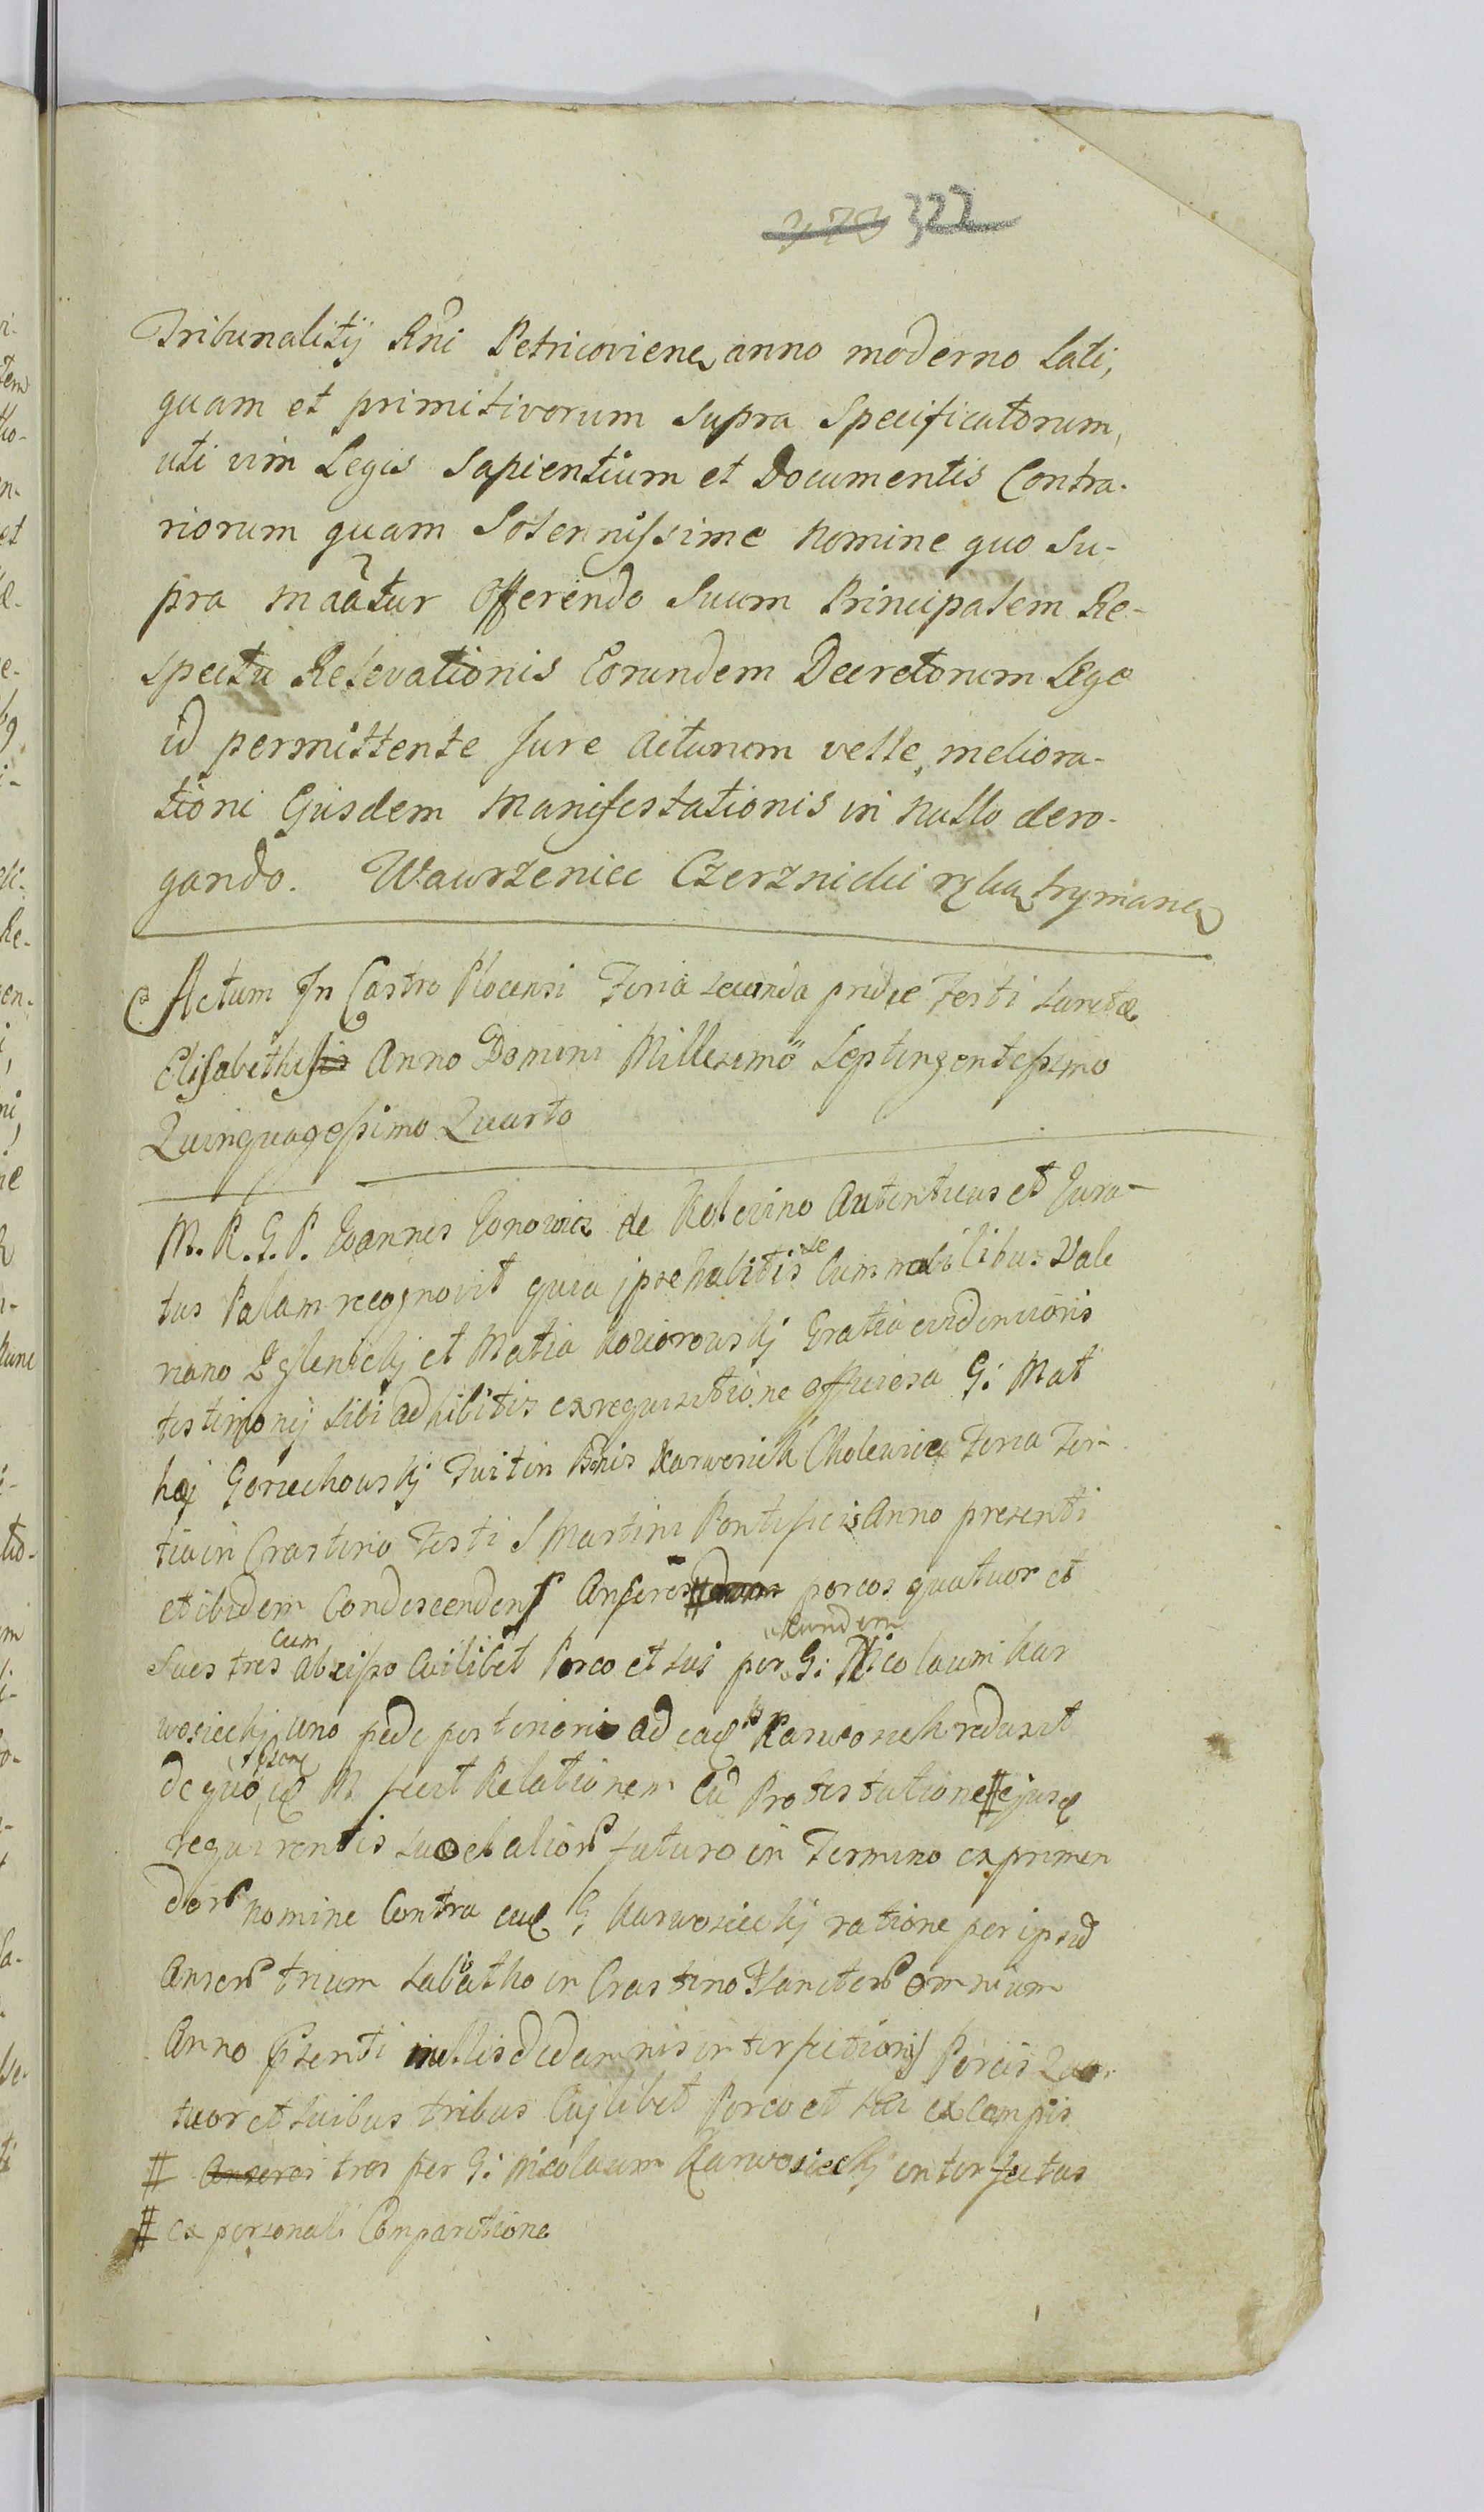 322
Tribunalitij Rni Petricoviens anno moderno Lati,
quam et primitivorum supra Specificatorum,
uti vim Legis Sapientium et Documentis Contra-
riorum quam Solennissime Nomine quo Su-
pra maatur Offerendo Suum Principalem Re-
spectu Relevationis Eorundem Decretorum Lege
id permittente Jure acturum velle, meliora-
tioni Ejusdem Manifestationis in Nullo dero-
gando. Wawrzeniec Czerznicki ręką trzymaną
Actum In Castro Plocensi Feria secunda pridie Festi sanctæ
Elisabethis Anno Domini Millesimo Septingentesimo
Quinquagesimo Quarto
M. R. G. P. Joannes Jonowicz de Kolevino Autenticus et Jura-
tus Palam recognovit quia ipse habitis se Cum nobilibus Vale
riano Zglenickj et Matia Koziorowskj Gratia evidentioris
testimonij sibi adhibitis ex requisitione officiosa G: Mat
haj Goriechowskj Fuit in Bonis Karwosiek Cholewice Feria Ter-
tia in Crastino Festi S Martini Pontificis Anno presenti
et ibidem Condescendens Anseres # porcos quatuor et
Sues tres cum abscisso Cuilibet Porco et sui per eundem G: Nicolaum Kar
wosieckj uno pede posteriori ad ead Karwosiek reduxit
de quo id M. fecit Relationem Cu Protestatione # ejusd
requirentis suo et alior futuro in Termino exprimen
dor nomine Contra eud G Karwosieckj ratione per ipsu
Anser trium sabatho in Crastino Sanctor omnium
Anno psenti nullis de damnis interfectionis Porcis Qua-
tuor et suibus tribus Cujlibet Porco et sui ex Campis
# Anseres tres per G: Nicolaum Karwosieckj interfectas
# ex personali Comparitione